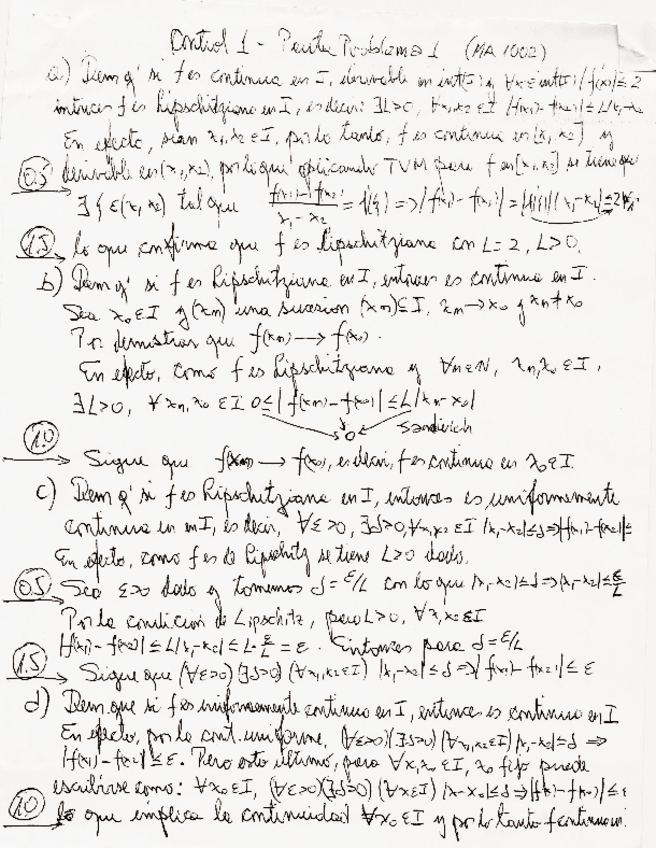 Control 1 - Pauta Problema 1 (MA 1002)
a) Dem q' si f es continua en I, derivable en int(I) y ∀x∈int(I) |f'(x)|≤2
entonces f es Lipschitziana en I, es decir: ∃L>0, ∀x₁,x₂∈I |f(x₁)-f(x₂)|≤L|x₁-x₂|
En efecto, sean x₁,x₂∈I, por lo tanto, f es continua en [x₁,x₂] y
0.5 derivable en (x₁,x₂), por lo que aplicando TVM para f en [x₁,x₂] se tiene que
∃ξ∈(x₁,x₂) tal que f(x₁)-f(x₂)/x₁-x₂ = f'(ξ) => |f(x₁)-f(x₂)| = |f'(ξ)||x₁-x₂|≤2
1.5 lo que confirma que f es lipschitziana con L=2, L>0.
b) Dem q' si f es Lipschitziana en I, entonces es continua en I.
Sea x₀∈I y (xn) una sucesion (xn)⊆I, xn→x₀ y xn≠x₀
Por demostrar que f(xn)→f(x₀).
En efecto, como f es Lipschitziana y ∀n∈N, xn,x₀∈I,
∃L>0, ∀xn,x₀∈I 0≤|f(xn)-f(x₀)|≤L|xn-x₀|
0 Sandwich
1.0 Sigue que f(xn)→f(x₀), es decir, f es continua en x₀∈I
c) Dem q' si f es Lipschitziana en I, entonces es uniformemente
continua en en I, es decir, ∀ε>0, ∃δ>0, ∀x₁,x₂∈I |x₁-x₂|≤δ=>|f(x₁)-f(x₂)|≤
En efecto, como f es de Lipschitz se tiene L>0 dado.
0.5 Sea ε>0 dado y tomemos δ=ε/L con lo que |x₁-x₂|≤δ=>|x₁-x₂|≤ε/L
Por la condicion de Lipschitz, para L>0, ∀x₁,x₂∈I
|f(x₁)-f(x₂)|≤L|x₁-x₂|≤L·ε/L=ε. Entonces para δ=ε/L
1.5 Sigue que (∀ε>0)(∃δ>0)(∀x₁,x₂∈I) |x₁-x₂|≤δ=>|f(x₁)-f(x₂)|≤ε
d) Dem. que si f es uniformemente continua en I, entonces es continua en I
En efecto, por la cont. uniforme, (∀ε>0)(∃δ>0)(∀x₁,x₂∈I) |x₁-x₂|≤δ =>
|f(x₁)-f(x₂)|≤ε. Pero esto ultimo, para ∀x,x₀∈I, x₀ fijo puede
escribirse como: ∀x₀∈I, (∀ε>0)(∃δ>0)(∀x∈I) |x-x₀|≤δ=>|f(x)-f(x₀)|≤ε
1.0 lo que implica la continuidad ∀x₀∈I y por lo tanto f continua